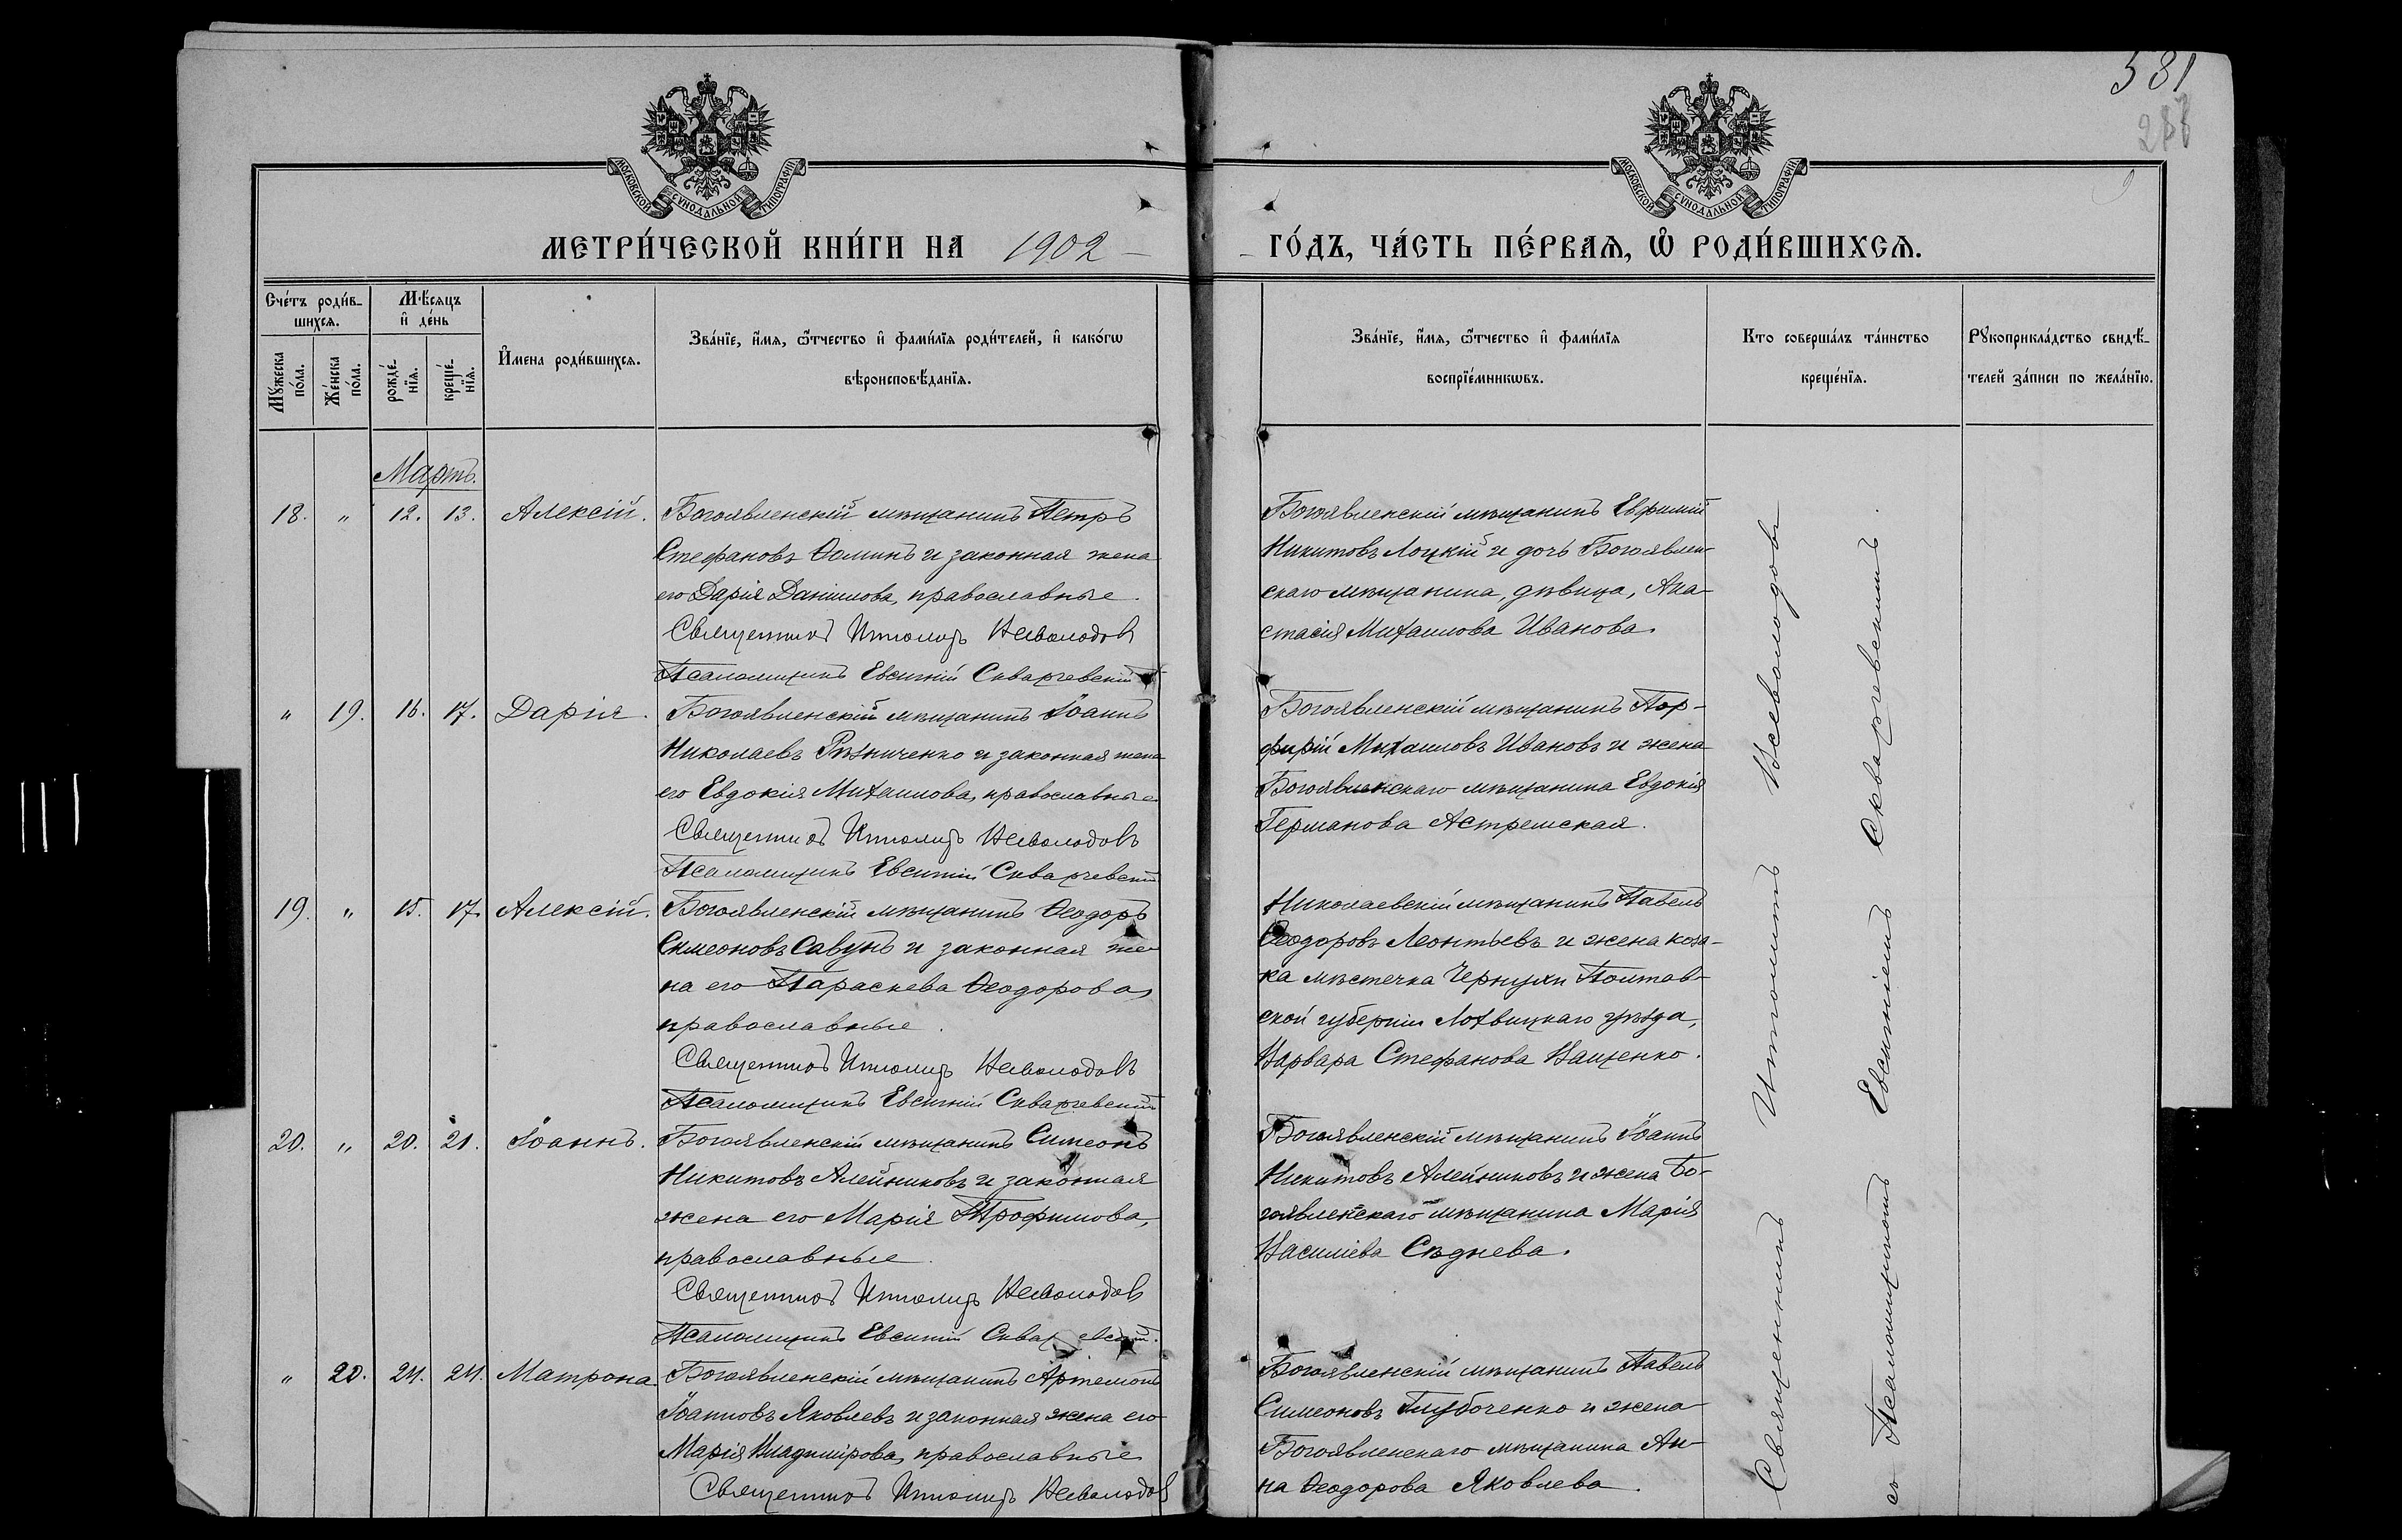 581
288
МОСКОВСКОЙ СУНОДАЛЬНОЙ ТИПОГРАФІИ
МОСКОВСКОЙ СУНОДАЛЬНОЙ ТИПОГРАФІИ
МЕТРИ́ЧЕСКОЙ КНИ́ГИ НА 1902 ГО́ДЪ, ЧА́СТЬ ПЕ́РВАѦ, Ѽ РОДИ́ВШИХСѦ.
Сче́тъ роди́в-
шихсѧ.
Мꙋ́жеска по́ла.
Же́нска по́ла.
Мѣ́сѧцъ
и҆ де́нь
рожде́-
нїѧ.
креще́-
нїѧ.
И҆́мена роди́вшихсѧ.
Зва́нїе, и҆́мѧ, ѻ҆́тчество и҆ фами́лїѧ роди́телей, и҆ како́гѡ
вѣроисповѣ́данїѧ.
Зва́нїе, и҆́мѧ, ѻ҆́тчество и҆ фами́лїѧ
воспрїе́мникѡвъ.
Кто соверша́лъ та́инство
креще́нїѧ.
Рꙋкоприкла́дство свидѣ́-
телей за́писи по жела́нїю.
Мартъ.
18. " 12. 13. Алексій. Богоявленскій мѣщанинъ Петръ
Стефановъ Ѳоминъ и законная жена
его Дарія Даніилова, православные.
Священникъ Ипполитъ Всеволодовъ
Псаломщикъ Евсигній Скваржевскій
Богоявленскій мѣщанинъ Евфимій
Никитовъ Лоцкій и дочь Богоявлен-
скаго мѣщанина, дѣвица, Ана-
стасія Михаилова Иванова.
" 19. 16. 17. Дарія. Богоявленскій мѣщанинъ Іоаннъ
Николаевъ Рѣзниченко и законная жена
его Евдокія Михаилова, православные
Священникъ Ипполитъ Всеволодовъ
Псаломщикъ Евсигній Скваржевскій
Богоявленскій мѣщанинъ Пор-
фирій Михаиловъ Ивановъ и жена
Богоявленскаго мѣщанина Евдокія
Германова Астремская.
19. " 15. 17. Алексій. Богоявленскій мѣщанинъ Ѳеодоръ
Симеоновъ Савунъ и законная же-
на его Параскева Ѳеодорова,
православные.
Священникъ Ипполитъ Всеволодовъ
Псаломщикъ Евсигній Скваржевскій
Николаевскій мѣщанинъ Павелъ
Ѳеодоровъ Леонтьевъ и жена коза-
ка мѣстечка Чернухи Полтав-
ской губерніи Лохвицкаго уѣзда,
Варвара Стефанова Ващенко.
20. " 20. 21. Іоаннъ. Богоявленскій мѣщанинъ Симеонъ
Никитовъ Алейниковъ и законная
жена его Марія Трофимова,
православные.
Священникъ Ипполитъ Всеволодовъ
Псаломщикъ Евсигній Скваржевскій.
Богоявленскій мѣщанинъ Іоаннъ
Никитовъ Алейниковъ и жена Бо-
гоявленскаго мѣщанина Марія
Василіева Сѣднева.
" 20. 24. 24. Матрона. Богоявленскій мѣщанинъ Артемонъ
Іоанновъ Яковлевъ и законная жена его
Марія Владимірова, православные
Священникъ Ипполитъ Всеволодовъ
Богоявленскій мѣщанинъ Павелъ
Симеоновъ Глубоченко и жена
Богоявленскаго мѣщанина Ан-
на Ѳеодорова Яковлева.
Священникъ Ипполитъ Всеволодовъ
съ Псаломщикомъ Евсигніемъ Скваржевскимъ.